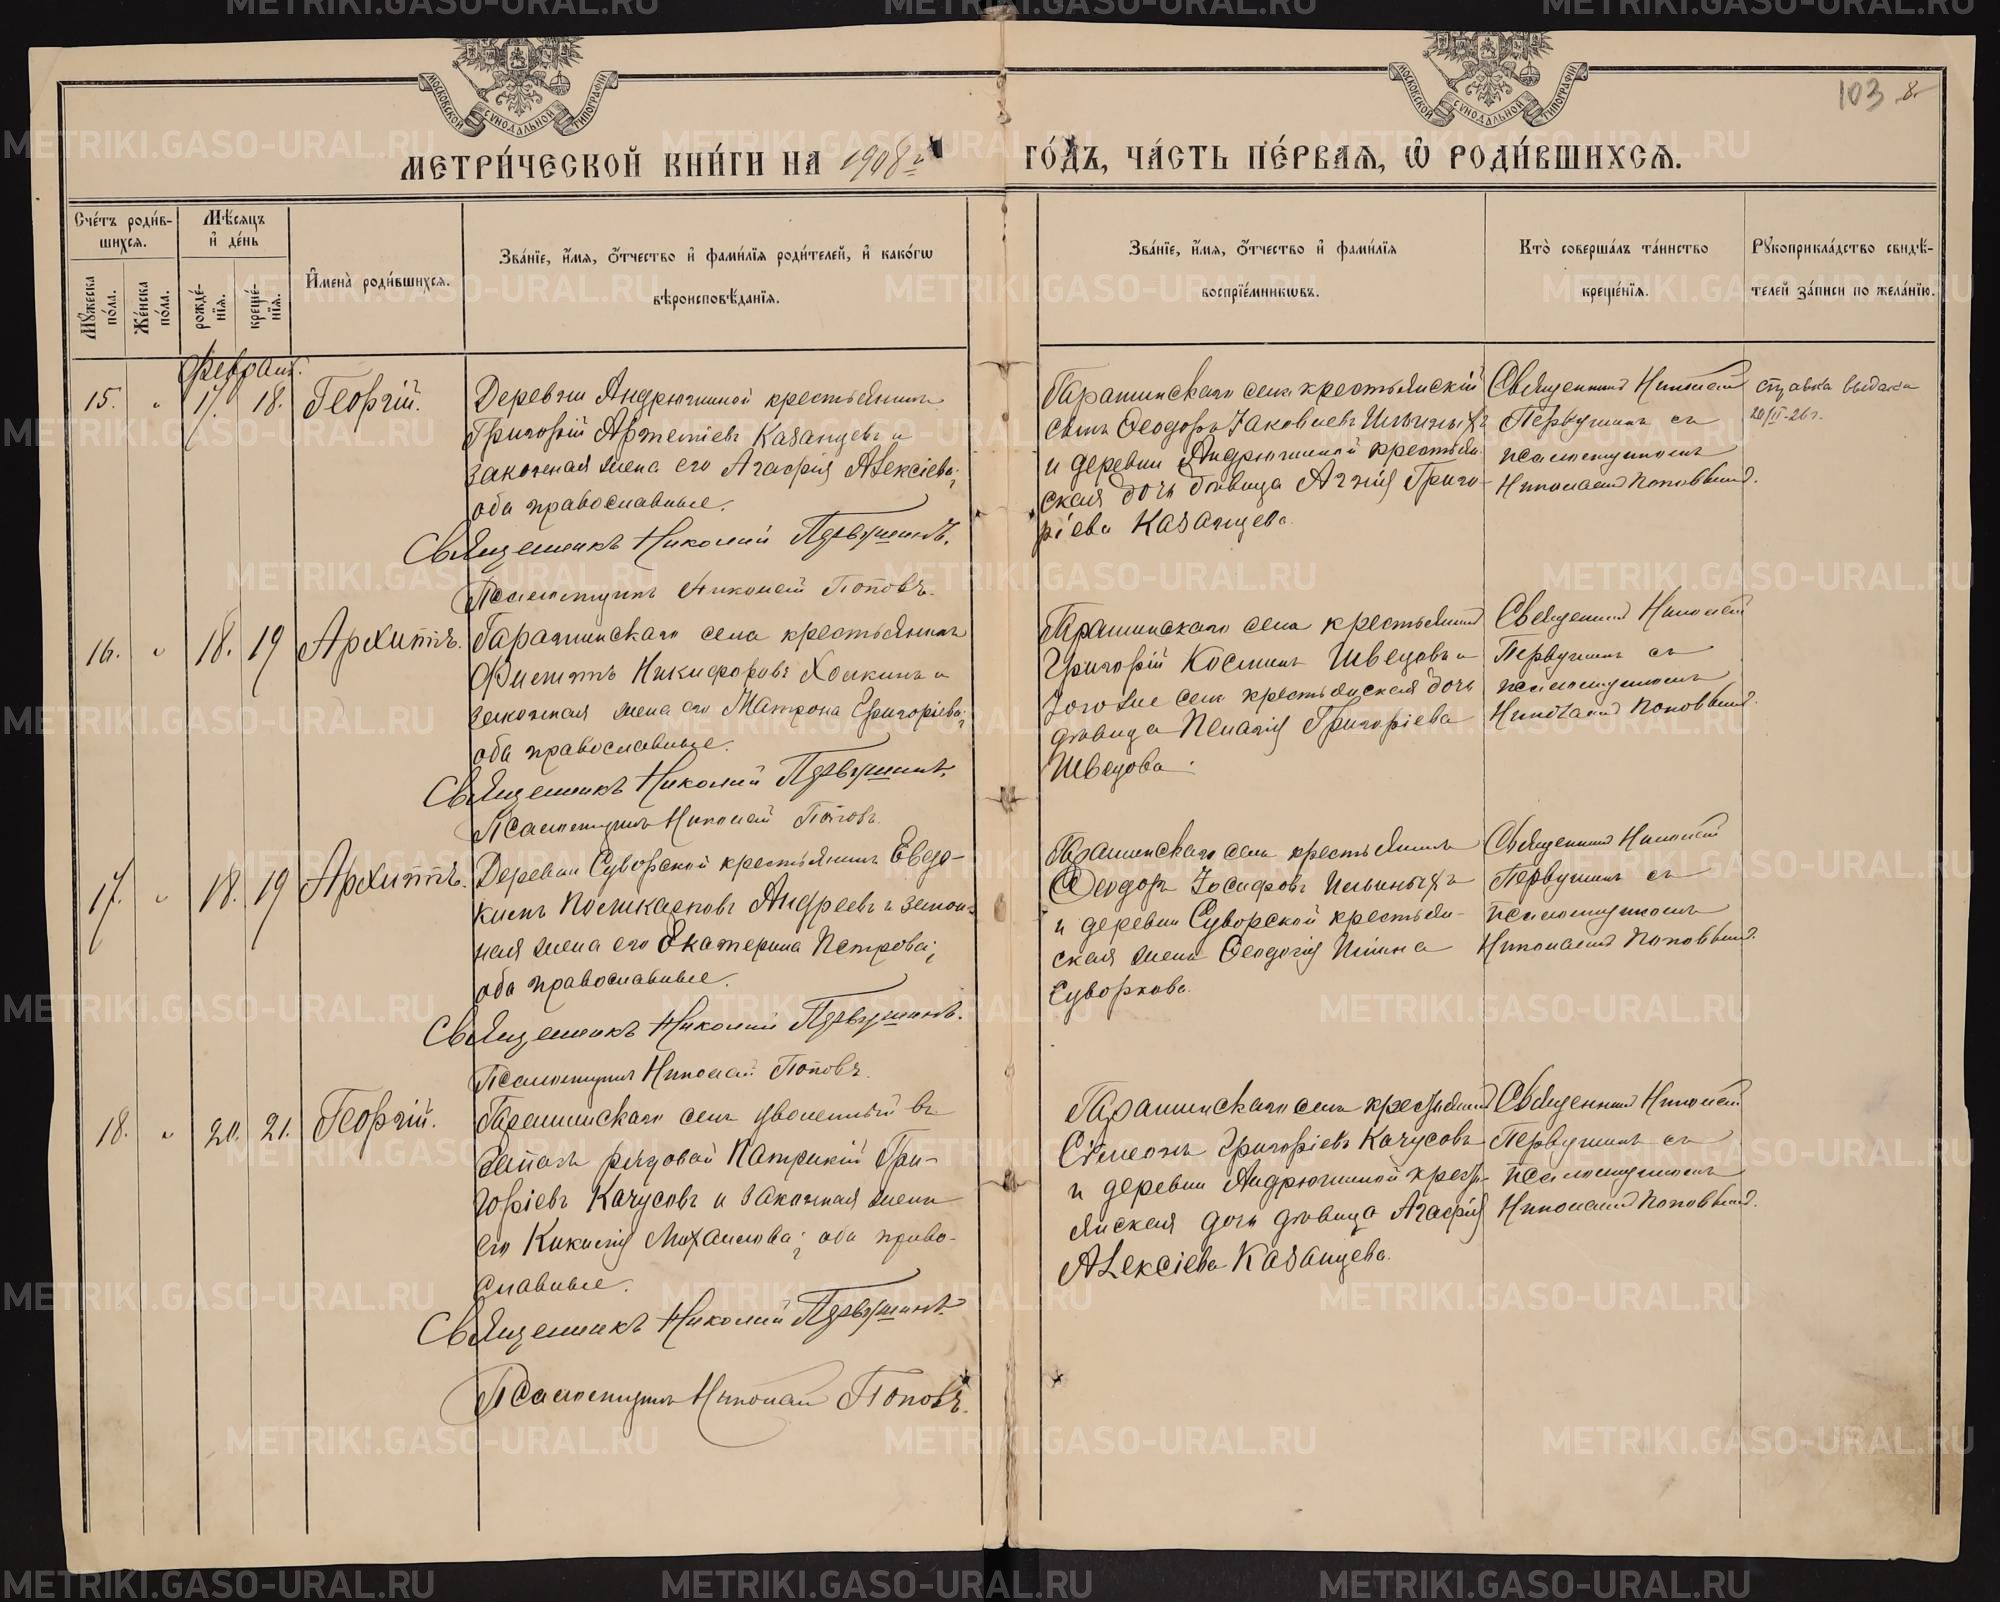 103 8.
МЕТРИ́ЧЕСКОЙ КНИ́ГИ НА 1908й ГО́ДЪ, ЧА́СТЬ ПЕ́РВАЯ, Ѡ РОДИ́ВШИХСЯ.
МОСКОВСКОЙ СѴНОДАЛЬНОЙ ТИПОГРАФІИ
МОСКОВСКОЙ СѴНОДАЛЬНОЙ ТИПОГРАФІИ
Сче́тъ роди́в-
шихся.
Мꙋ́жеска по́ла.
Же́нска по́ла.
Мѣ́сяцъ
и҆ де́нь
рожде́-
нїя.
креще́-
нїя.
И҆мена̀ роди́вшихся.
Зва́нїе, и҆́мя, ѻ҆́тчество и҆ фами́лїя роди́телей, и҆ како́гѡ
вѣроисповѣ́данїя.
Зва́нїе, и҆́мя, ѻ҆́тчество и҆ фами́лїя
воспрїе́мникѡвъ.
Кто̀ соверша́лъ та́инство
креще́нїя.
Рꙋкоприкла́дство свидѣ́-
телей за́писи по жела́нїю.
Февраль.
15. " 17. 18. Георгій.
Деревни Андрюшиной крестьянинъ
Григорій Артеміевъ Казанцевъ и
законная жена его Агафія Алексіева;
оба православные.
Священникъ Николай Первушинъ.
Псаломщикъ Николай Поповъ.
Гарашинскаго села крестьянскій
сынъ Ѳеодоръ Іаковлевъ Ильиныхъ
и деревни Андрюшиной крестьян-
ская дочь дѣвица Агнія Григо-
ріева Казанцева.
Священникъ Николай
Первушинъ съ
псаломщикомъ
Николаемъ Поповымъ.
справка выдана
20/II-26г.
16. " 18. 19 Архиппъ.
Гарашинскаго села крестьянинъ
Никифоровъ Холкинъ и
законная жена его Матрона Григоріева;
оба православные.
Священникъ Николай Первушинъ.
Псаломщикъ Николай Поповъ.
Гарашинскаго села крестьянинъ
Григорій Косминъ Швецовъ и
того же села крестьянская дочь
дѣвица Пелагія Григоріева
Швецова.
Священникъ Николай
Первушинъ съ
псаломщикомъ
Николаемъ Поповымъ.
17. " 18. 19 Архиппъ.
Деревни Суворской крестьянинъ Евдо-
кимъ Андреевъ и закон-
ная жена его Екатерина Петрова;
оба православные.
Священникъ Николай Первушинъ.
Псаломщикъ Николай Поповъ.
Гарашинскаго села крестьянинъ
Ѳеодоръ Іосифовъ Ильиныхъ
и деревни Суворской крестьян-
ская жена Ѳеодосія Ильина
Суворкова.
Священникъ Николай
Первушинъ съ
псаломщикомъ
Николаемъ Поповымъ.
18. " 20. 21. Георгій.
Гарашинскаго села уволенный въ
запасъ рядовой Патрикій Гри-
горіевъ Качусовъ и законная жена
его Михаилова; оба право-
славные.
Священникъ Николай Первушинъ.
Псаломщикъ Николай Поповъ.
Гарашинскаго села крестьянинъ
Симеонъ Григоріевъ Качусовъ
и деревни Андрюшиной кресть-
янская дочь дѣвица Агафія
Алексіева Казанцева.
Священникъ Николай
Первушинъ съ
псаломщикомъ
Николаемъ Поповымъ.
METRIKI.GASO-URAL.RU